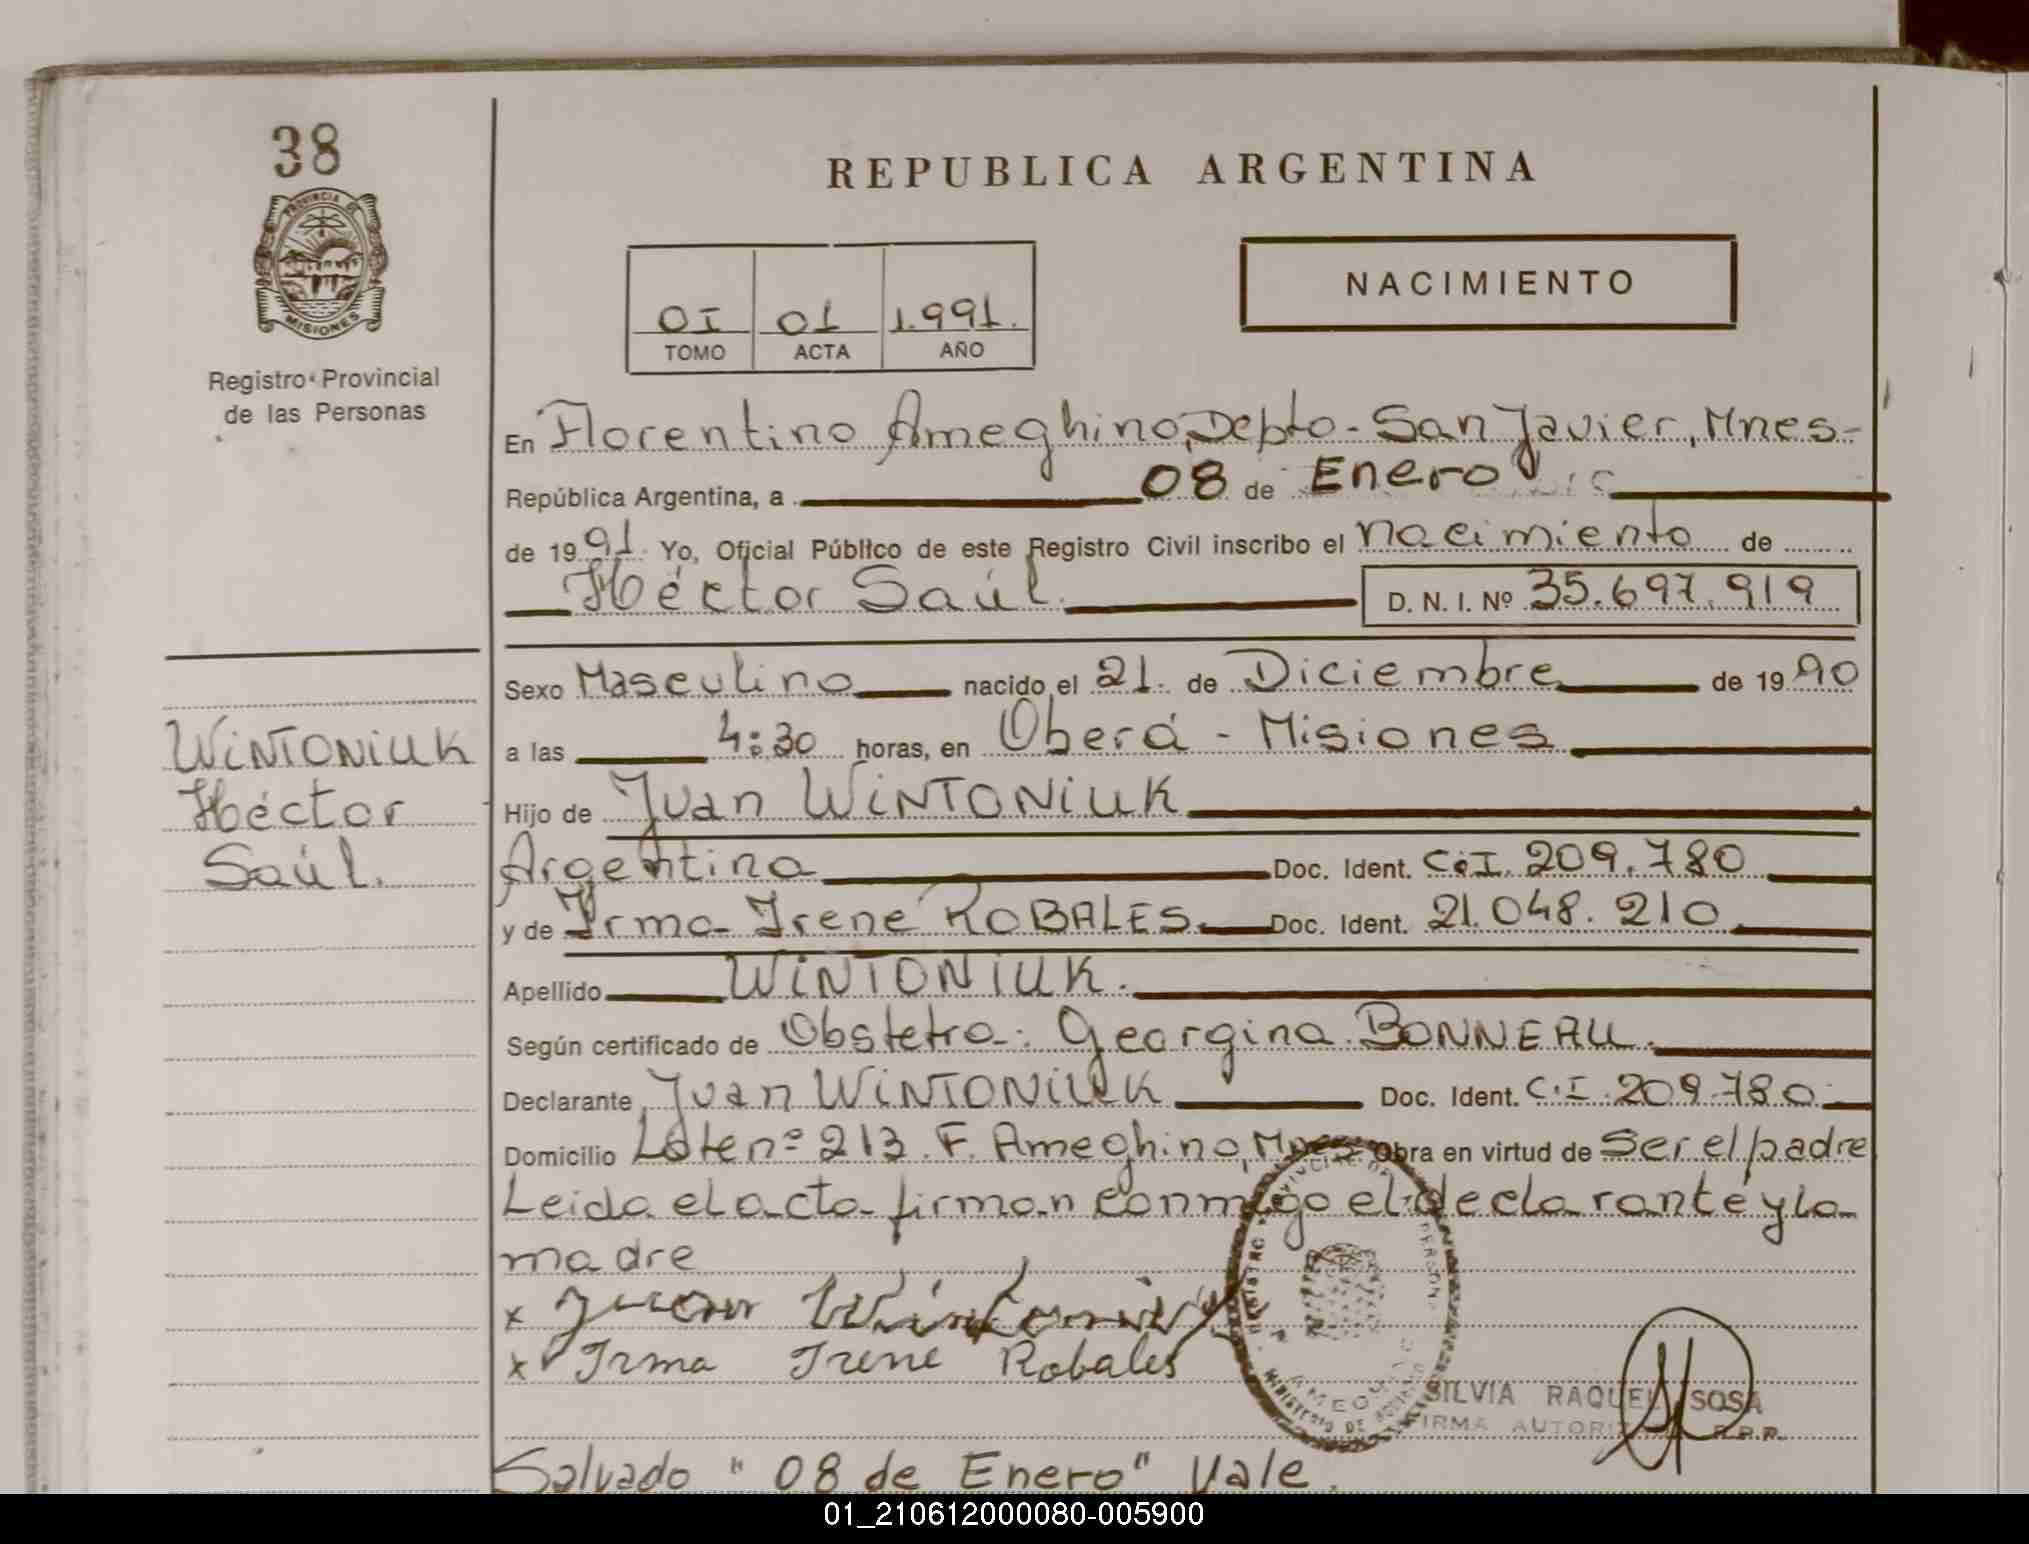 38
PROVINCIA DE
MISIONES
Registro Provincial
de las Personas
REPUBLICA ARGENTINA
NACIMIENTO
OI 01 1.991.
TOMO ACTA AÑO
En Florentino Ameghino, Depto- San Javier, Mnes-
República Argentina, a 08 de Enero
de 1991. Yo, Oficial Público de este Registro Civil inscribo el nacimiento de
Héctor Saúl. D. N. I. Nº 35.697.919
Sexo Masculino nacido el 21. de Diciembre de 1990
a las 4:30 horas, en Oberá - Misiones
Hijo de Juan WiNTONiUK
Argentina Doc. Ident. C.I. 209.780
y de Irma Irene ROBALES. Doc. Ident. 21.048.210
Apellido WiNTONiUK.
Según certificado de Obstetra: Georgina BONNEAU.
Declarante Juan WiNTONiUK Doc. Ident. C.I. 209.780
Domicilio Lote nº 213. F. Ameghino, Mnes Obra en virtud de Ser el padre
Leida el acta firman conmigo el declarante y la
madre
x Juan Wintoniuk
x Irma Irene Robales
SILVIA RAQUEL SOSA
FIRMA AUTORIZADA
R.P.P.
Salvado "08 de Enero" Vale.
WiNTONiUK
Héctor
Saúl.
01_210612000080-005900